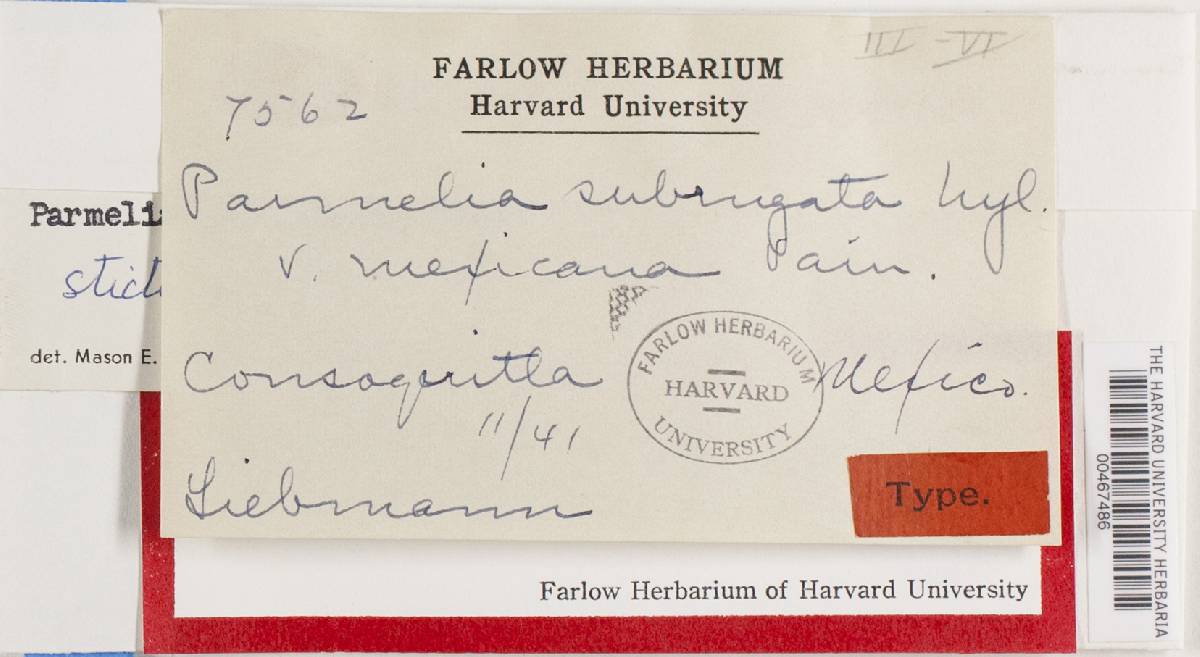 III-VI
FARLOW HERBARIUM
Harvard University
7562
Parmelia subrugata Nyl.
v. mexicana Vain.
Consoquitla Mexico.
11/41
Liebmann
FARLOW HERBARIUM
HARVARD
UNIVERSITY
Type.
Parmelia
stict
det. Mason E.
Farlow Herbarium of Harvard University
THE HARVARD UNIVERSITY HERBARIA
00467486